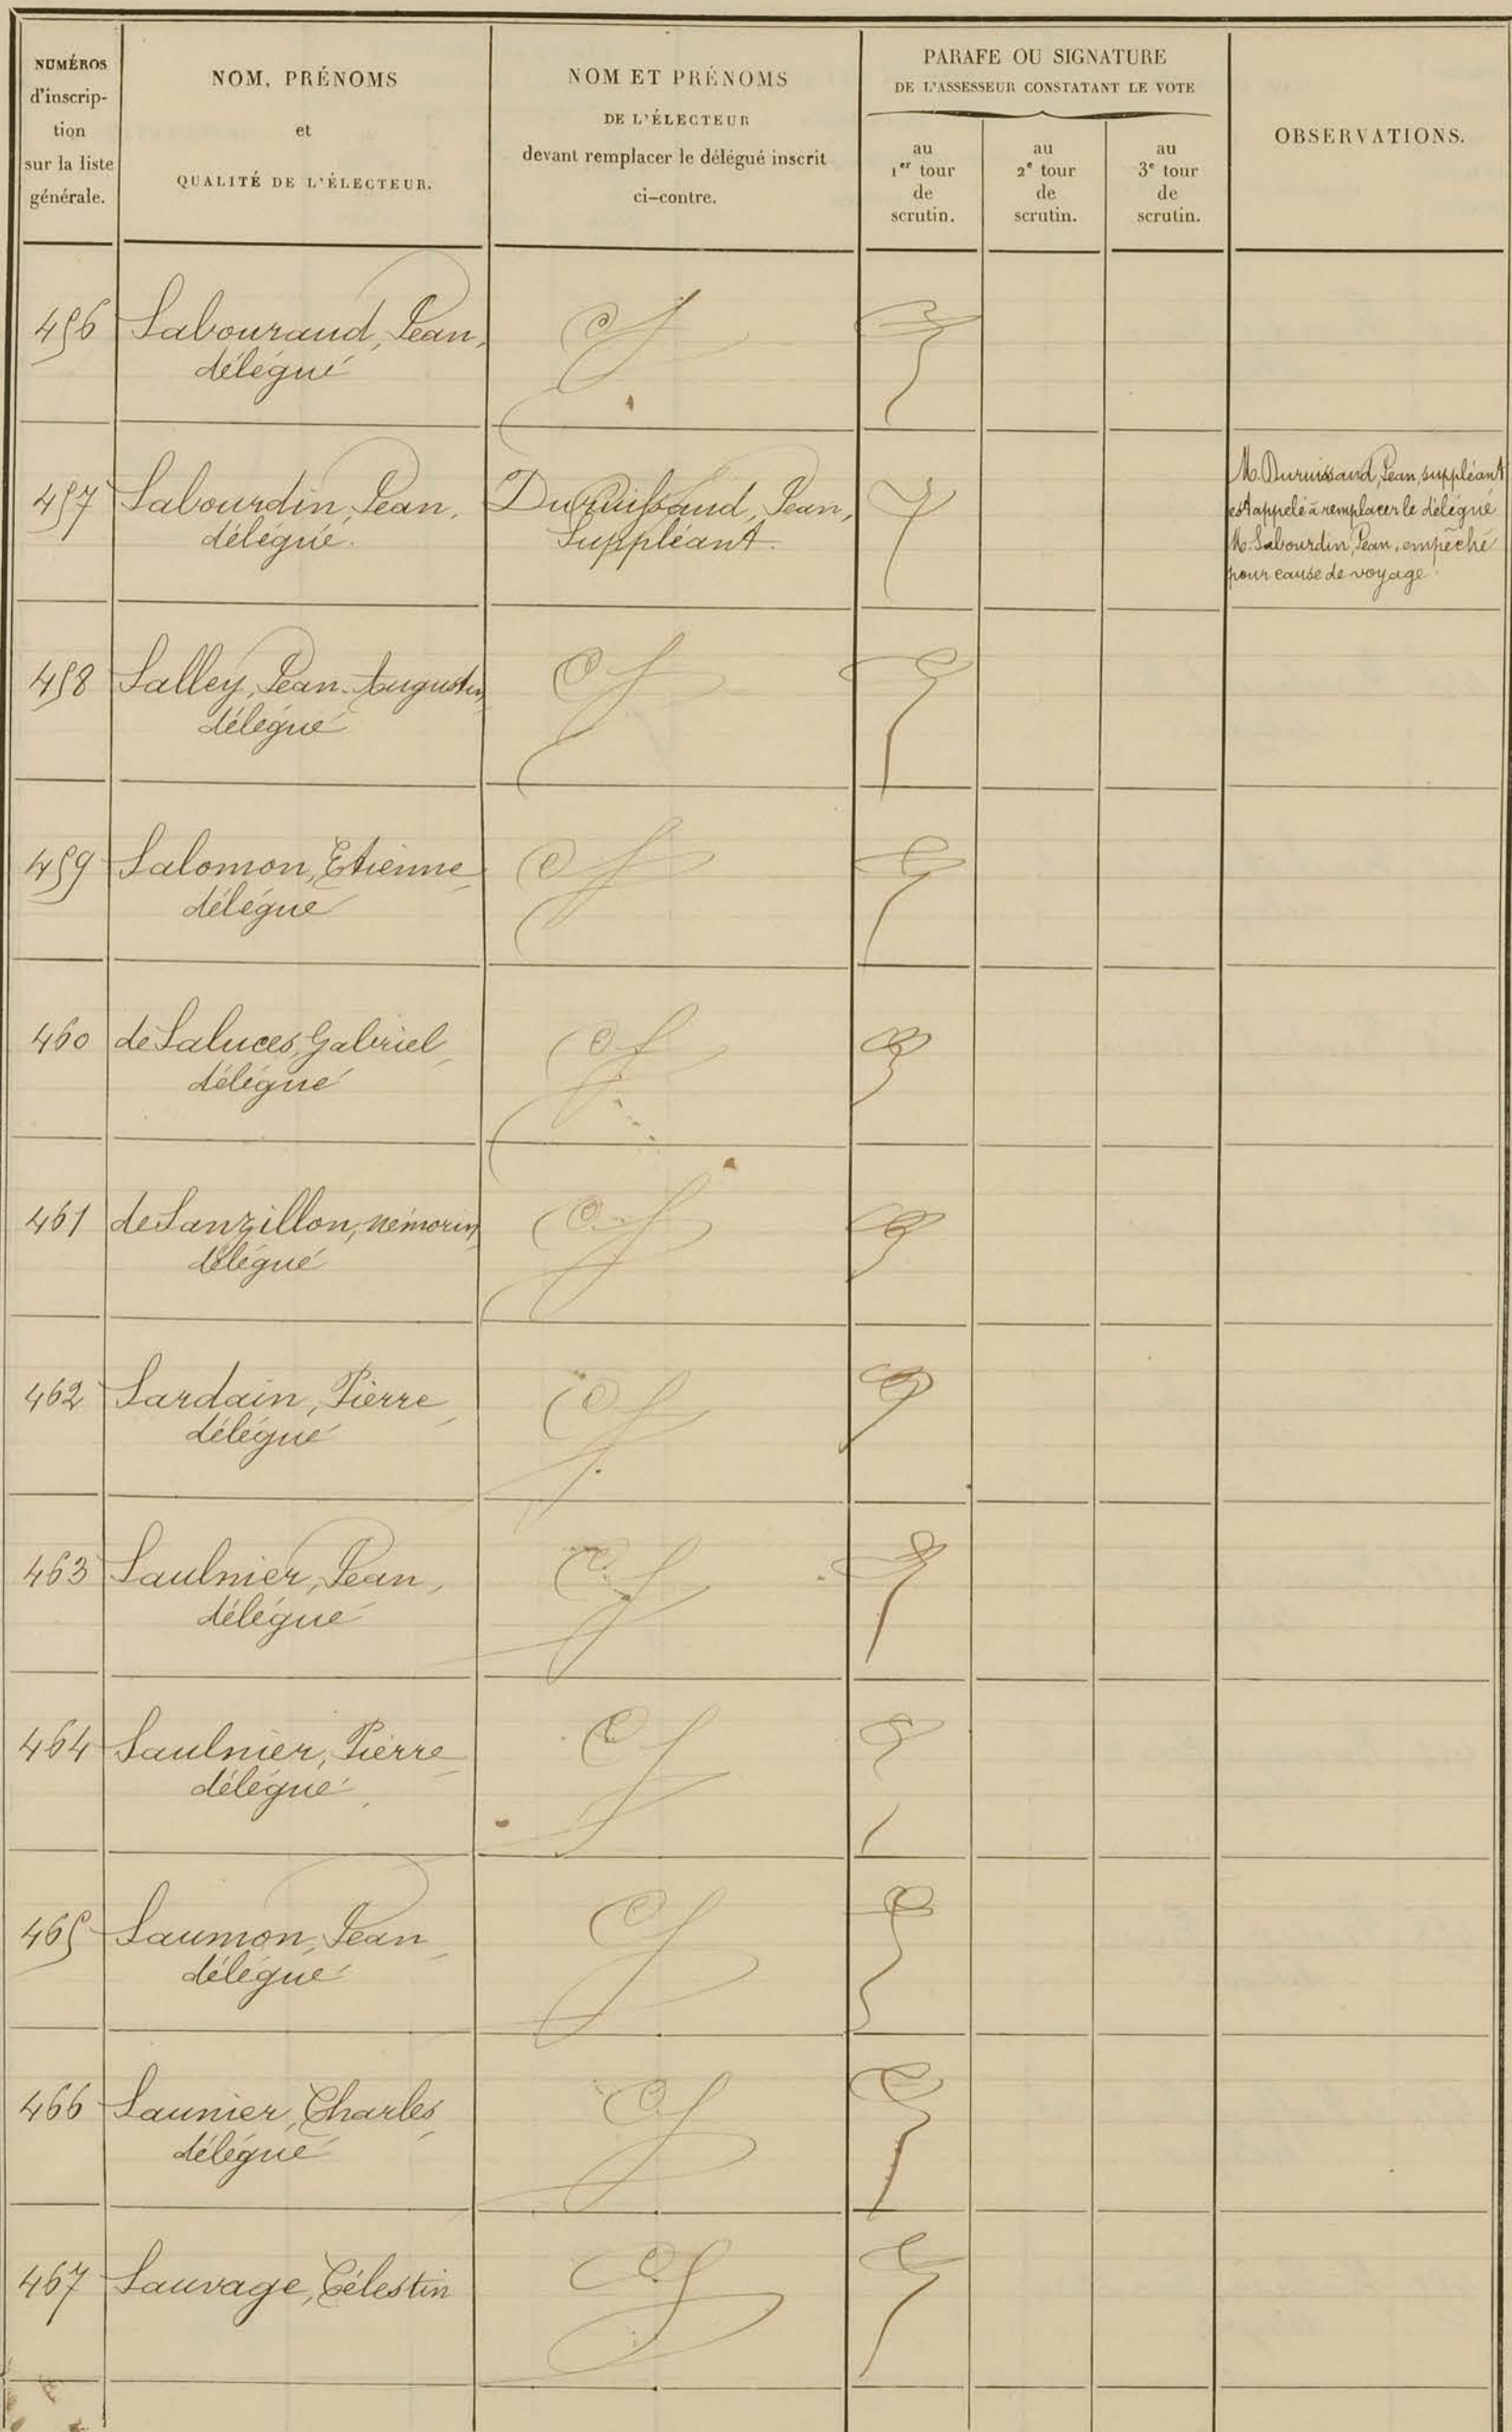 NUMÉROS
d'inscrip-
tion
sur la liste
générale.
NOM, PRÉNOMS
et
QUALITÉ DE L'ÉLECTEUR.
NOM ET PRÉNOMS
DE L'ÉLECTEUR
devant remplacer le délégué inscrit
ci-contre.
PARAFE OU SIGNATURE
DE L'ASSESSEUR CONSTATANT LE VOTE
au
1er tour
de
scrutin.
au
2e tour
de
scrutin.
au
3e tour
de
scrutin.
OBSERVATIONS.
456 Sabouraud, Jean,
délégué
457 Sabourdin, Jean, Duruissaud, Jean,
délégué. Suppléant.
M. Duruissaud, Jean, suppléant
est appelé à remplacer le délégué
M. Sabourdin, Jean, empêché
pour cause de voyage.
458 Salley, Jean-Augustin,
délégué
459 Salomon, Etienne,
délégué
460 de Saluces, Gabriel,
délégué
461 de Sanzillon, Némorin,
délégué
462 Sardain, Pierre,
délégué
463 Saulnier, Jean,
délégué
464 Saulnier, Pierre,
délégué
465 Saumon, Jean,
délégué
466 Saunier, Charles,
délégué
467 Sauvage, Célestin